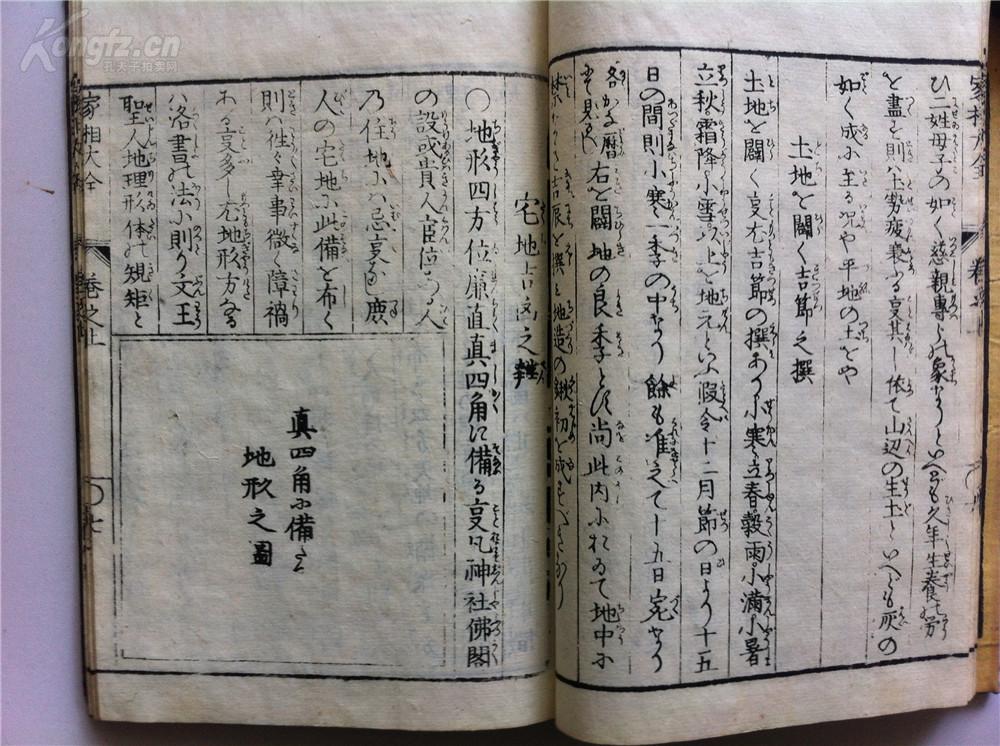 ひ二姓母子の如く慈親専らの象なりといへども久年生養の労
を盡す則ハ土勢疲衰する事其し依て山辺の生土といへども灰の
如く成に至る况や平地の土をや
土地を闢く吉節之撰
土地を闢く事尤吉節の撰あり小寒立春穀雨小満小暑
立秋霜降小雪以上を地元といふ假令十二月節の日より十五
日の間則小寒一季の中なり餘も准之て十五日宛なり
右を闢地の良季とす尚此内において地中に
宅地吉凶之辨
〇地形四方位廉直真四角に備る事凡神社佛閣
の設或貴人臣位ある人
乃住地にハ忌事なし庶
人の宅地に此備を布く
則ハ往々幸事微く障禍
ある事多し尤地形方なる
ハ洛書の法に則り文王
聖人地理形体の規矩と
真四角に備る
地形之圖
家相大全
巻之上
家相大全
Kongfz.cn
孔夫子拍卖网